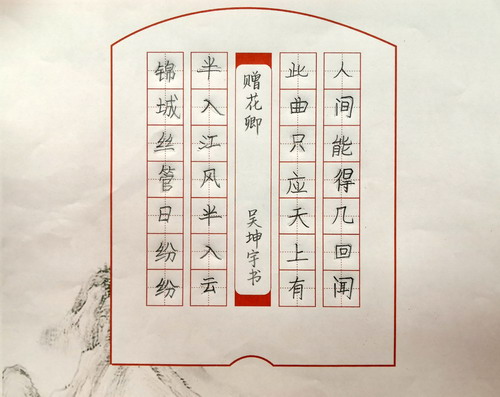 锦城丝管日纷纷
半入江风半入云
赠花卿
吴坤宇书
此曲只应天上有
人间能得几回闻